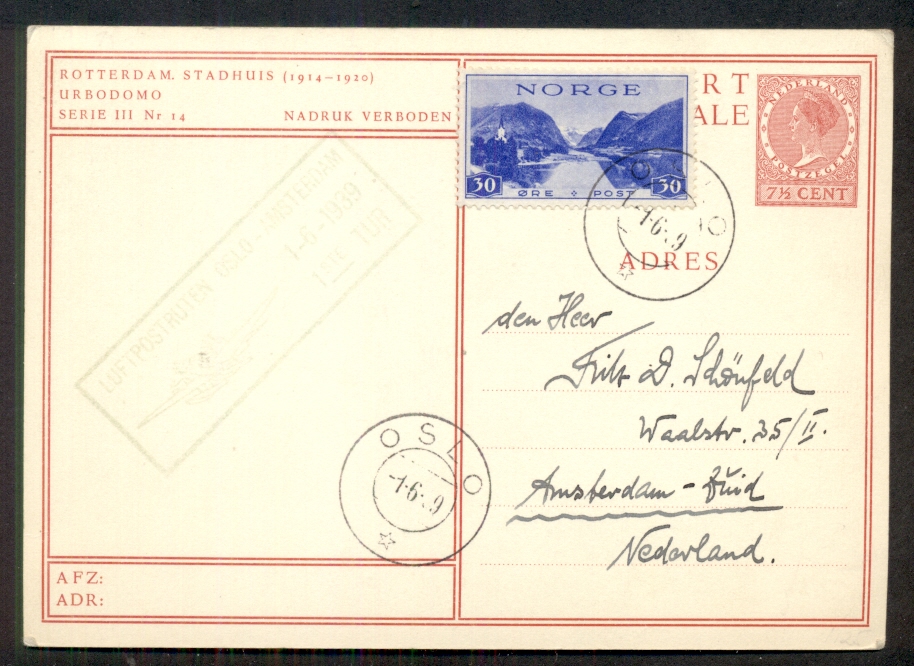 ROTTERDAM. STADHUIS (1914-1920)
URBODOMO
SERIE III Nr 14
NADRUK VERBODEN
NORGE
30 ØRE POST 30
RT
ALE
NEDERLAND
POSTZEGEL
7½ CENT
OSLO
-1.6.9
LUFTPOSTRUTEN OSLO - AMSTERDAM
1-6-1939
1STE TUR
ADRES
den Heer
Frits D. Schönfeld
Waalstr. 35/II.
Amsterdam - Zuid
Nederland.
OSLO
-1.6.9
AFZ:
ADR: